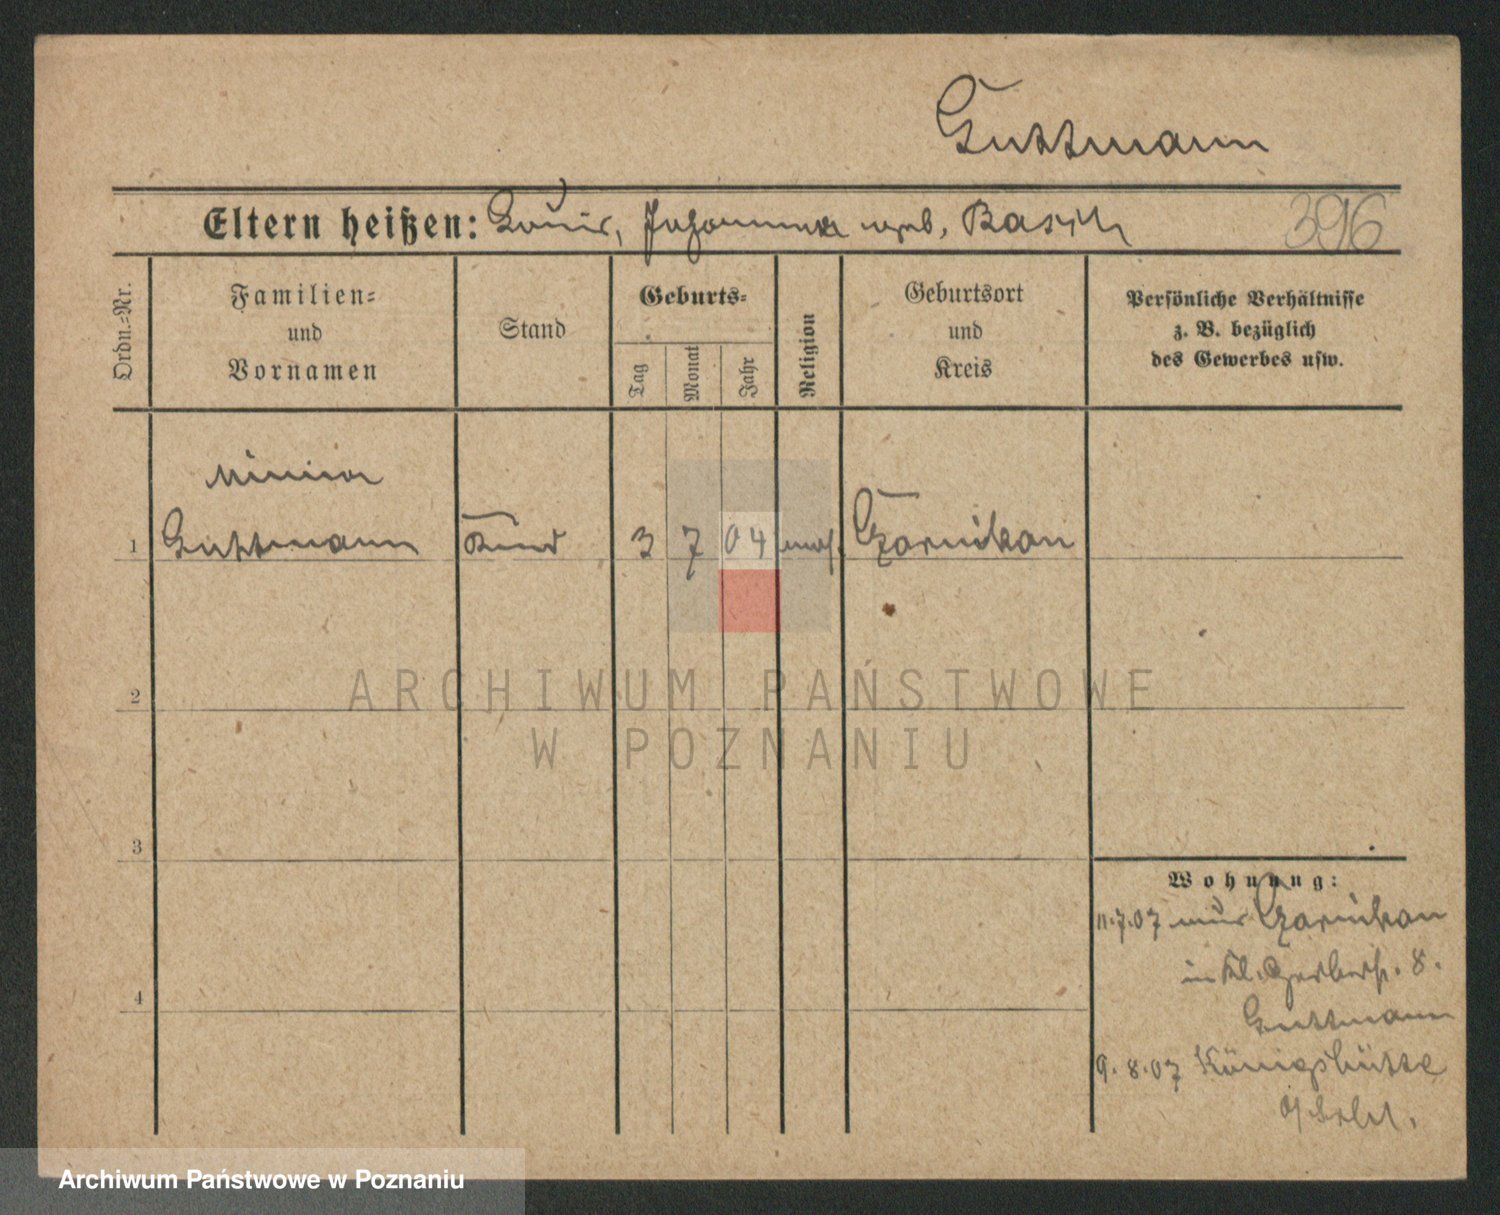 Guttmann
Eltern heißen: Louis, Johanna geb. Basch
396
Ordn.-Nr.
Familien-
und
Vornamen
Stand
Geburts-
Tag
Monat
Jahr
Religion
Geburtsort
und
Kreis
Persönliche Verhältnisse
z. B. bezüglich
des Gewerbes usw.
1
Guttmann
Kind
3
7
04
mos.
Czarnikau
2
ARCHIWUM PAŃSTWOWE
W POZNANIU
3
4
Wohnung:
11.7.07 aus Czarnikau
in Kl. Gerberstr. 8.
Guttmann
9.8.07 Königshütte
O/Schl.
Archiwum Państwowe w Poznaniu